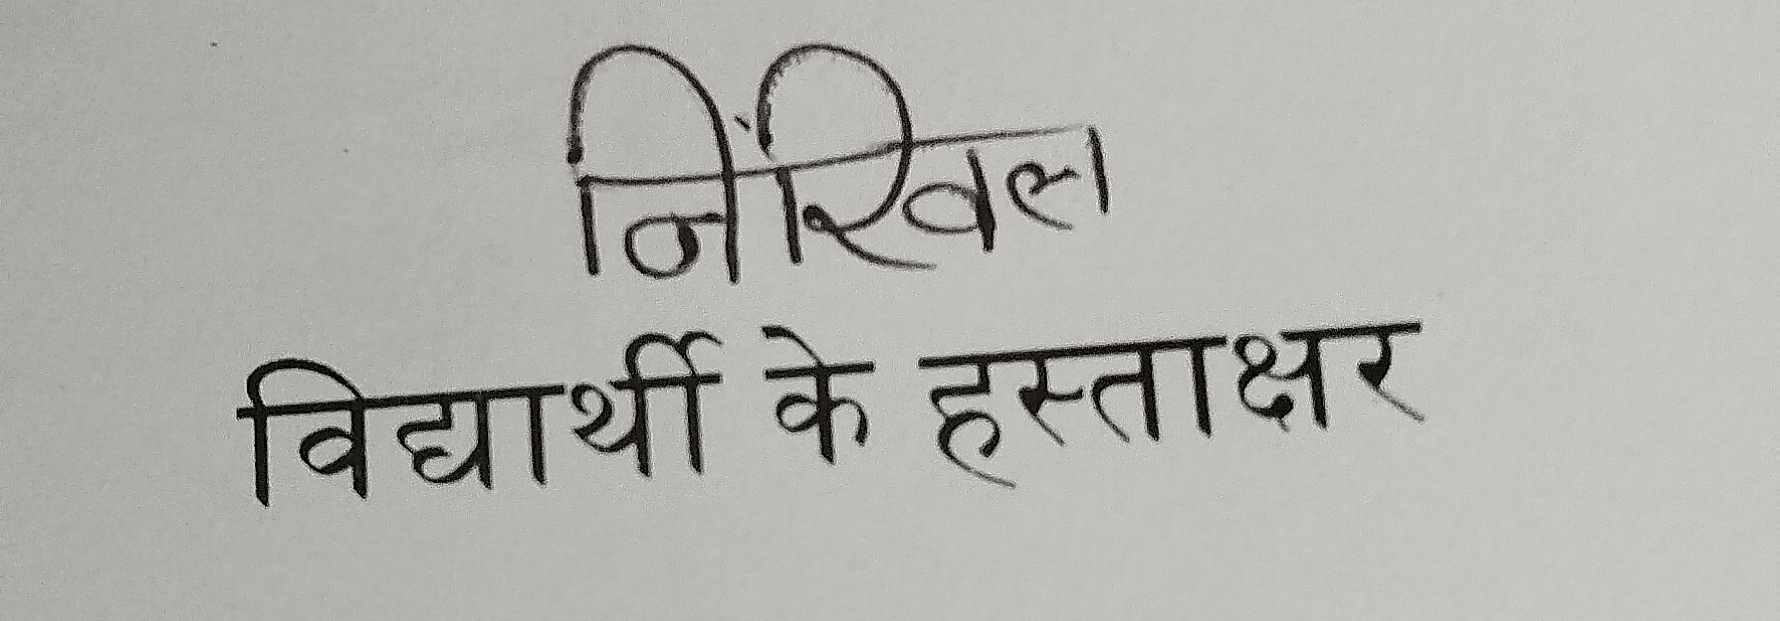 निखिल
विद्यार्थी के हस्ताक्षर